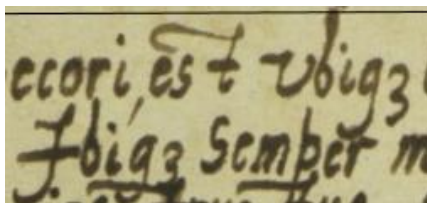 ecori, est vbiqꝫ
Ibiqꝫ Semper m